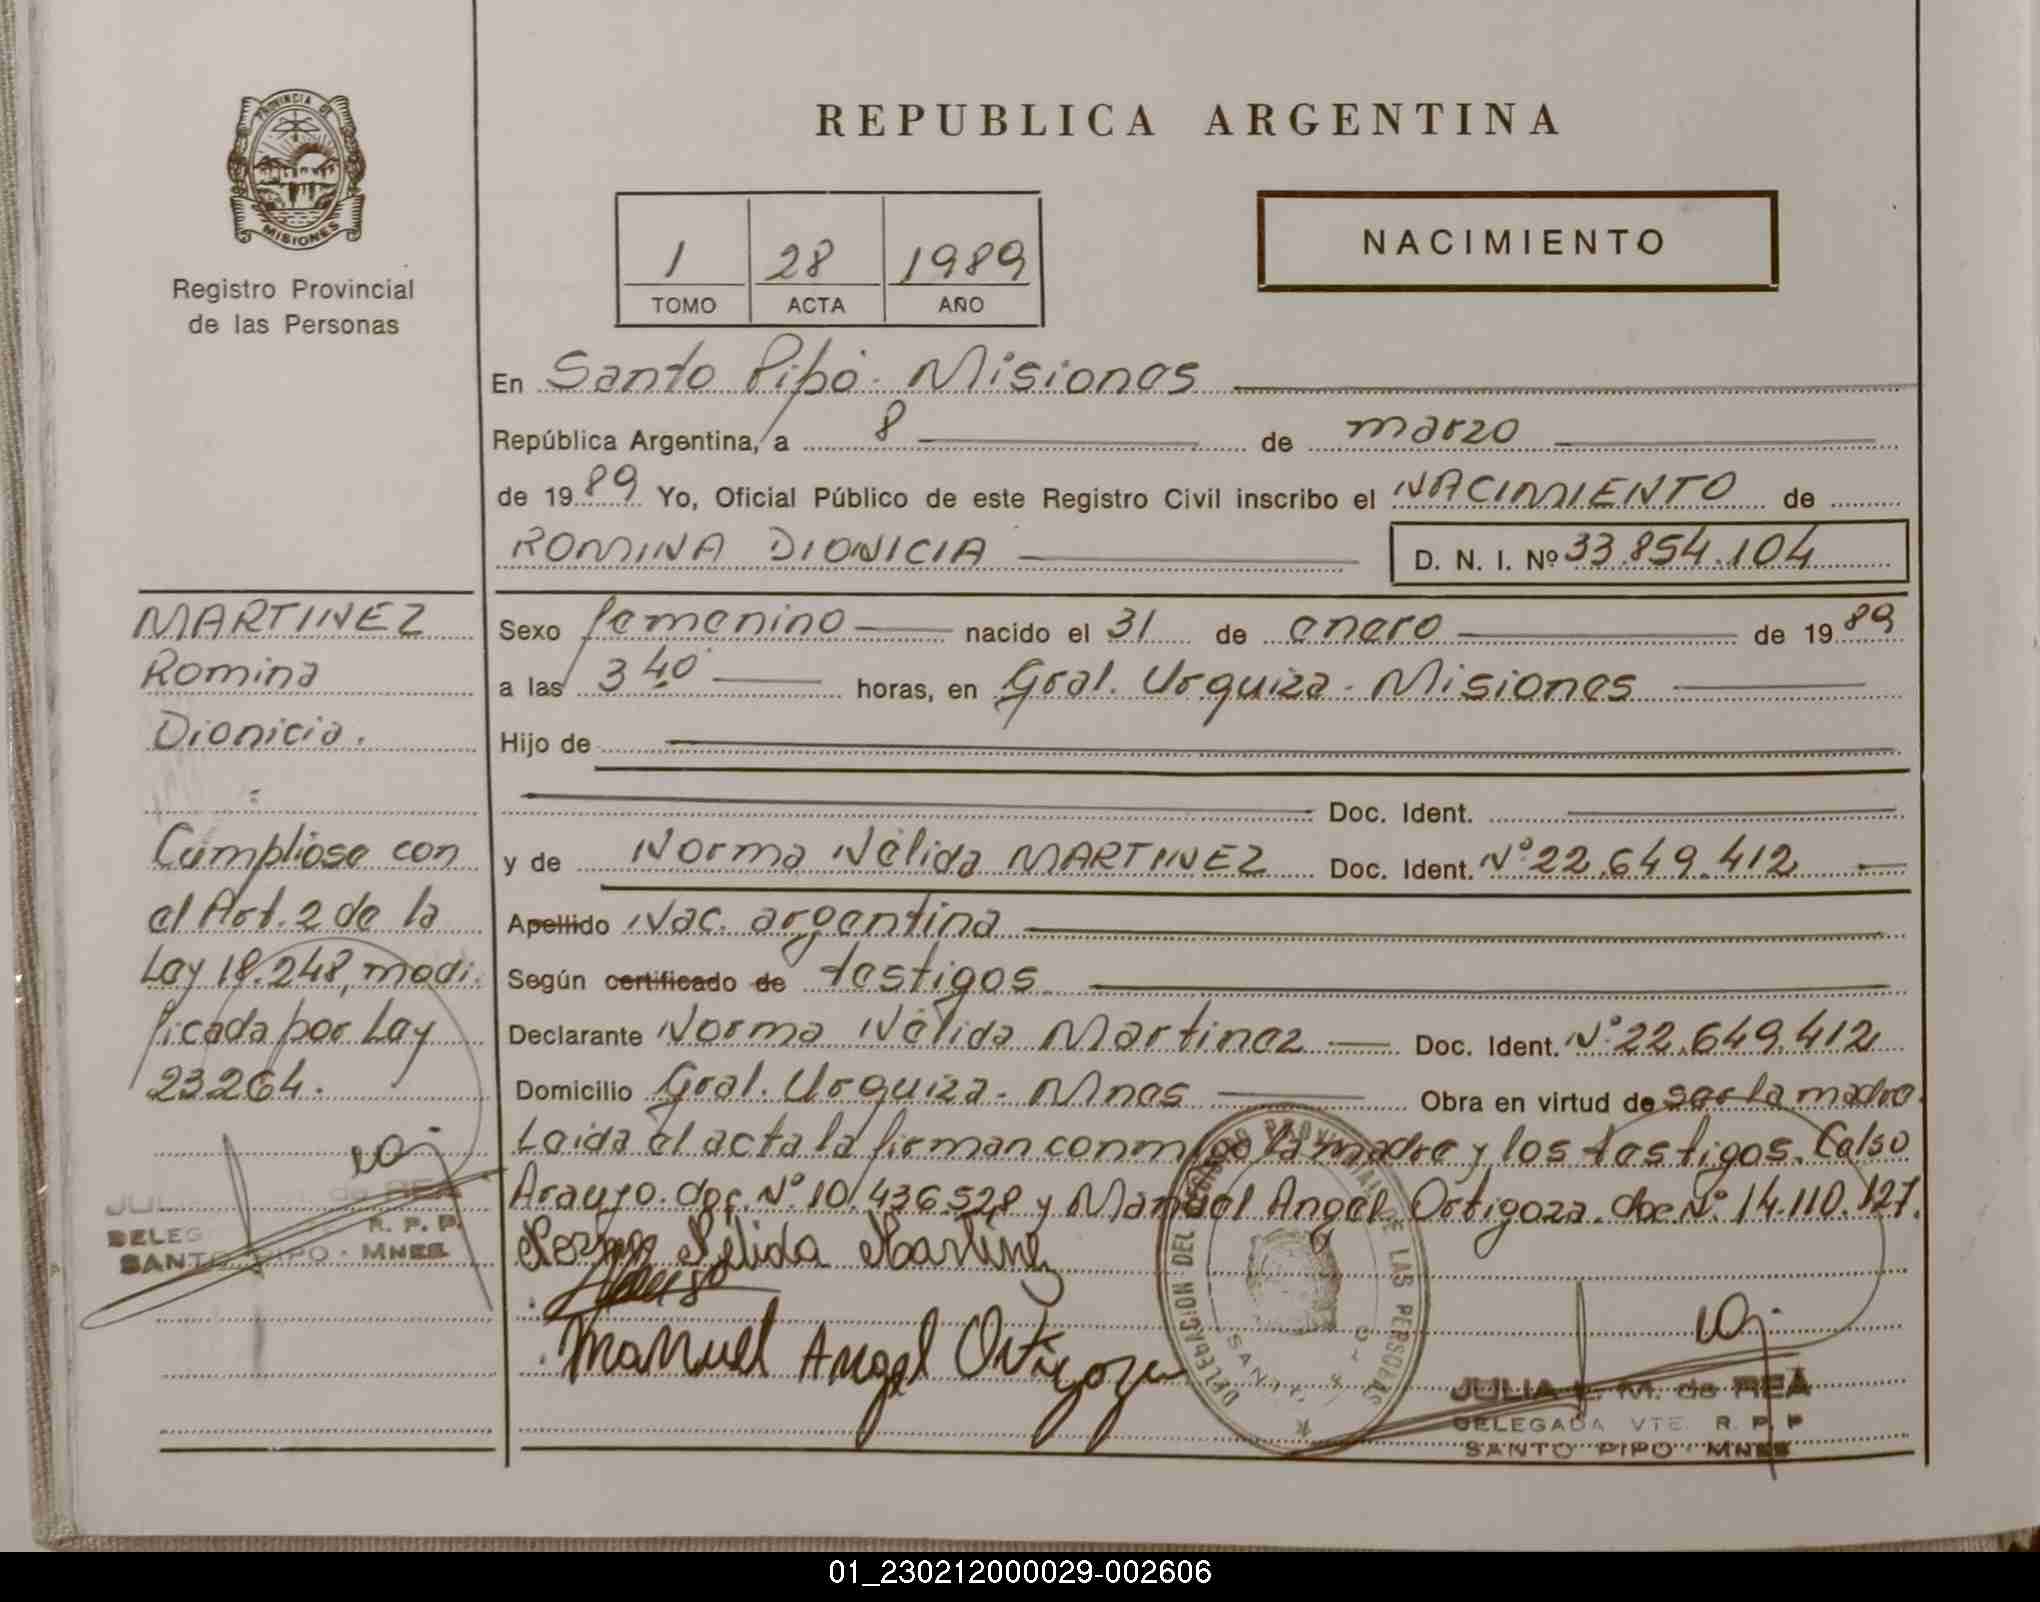 PROVINCIA DE
MISIONES
Registro Provincial
de las Personas
REPUBLICA ARGENTINA
1 28 1989
TOMO ACTA AÑO
NACIMIENTO
En Santo Pipó - Misiones
República Argentina, a 8 de marzo
de 1989 Yo, Oficial Público de este Registro Civil inscribo el NACIMIENTO de
ROMINA DIONICIA D. N. I. Nº 33.854.104
Sexo femenino nacido el 31 de enero de 1989
a las 3 40 horas, en Gral. Urquiza - Misiones
Hijo de
Doc. Ident.
y de Norma Nélida MARTINEZ Doc. Ident. Nº 22.649.412
Apellido Nac. argentina
Según certificado de testigos
Declarante Norma Nélida Martinez Doc. Ident. Nº 22.649.412
Domicilio Gral. Urquiza - Mnes Obra en virtud de ser la madre.
Leida el acta la firman conmigo la madre y los testigos. Celso
Araujo. doc. Nº 10.436.528 y Manuel Angel Ortigoza. doc Nº 14.110.127.
Norma Nélida Martinez
Manuel Angel Ortigoza
DELEGACION DEL REGISTRO PROVINCIAL DE LAS PERSONAS
JULIA M. de REA
DELEGADA VTE. R. P. P
SANTO PIPO - MNES
MARTINEZ
Romina
Dionicia.
Cúmpliose con
el Art. 2 de la
Ley 18.248, modi-
ficada por Ley
23264.
de REA
R. P. P.
SANTO PIPO - MNES
01_230212000029-002606